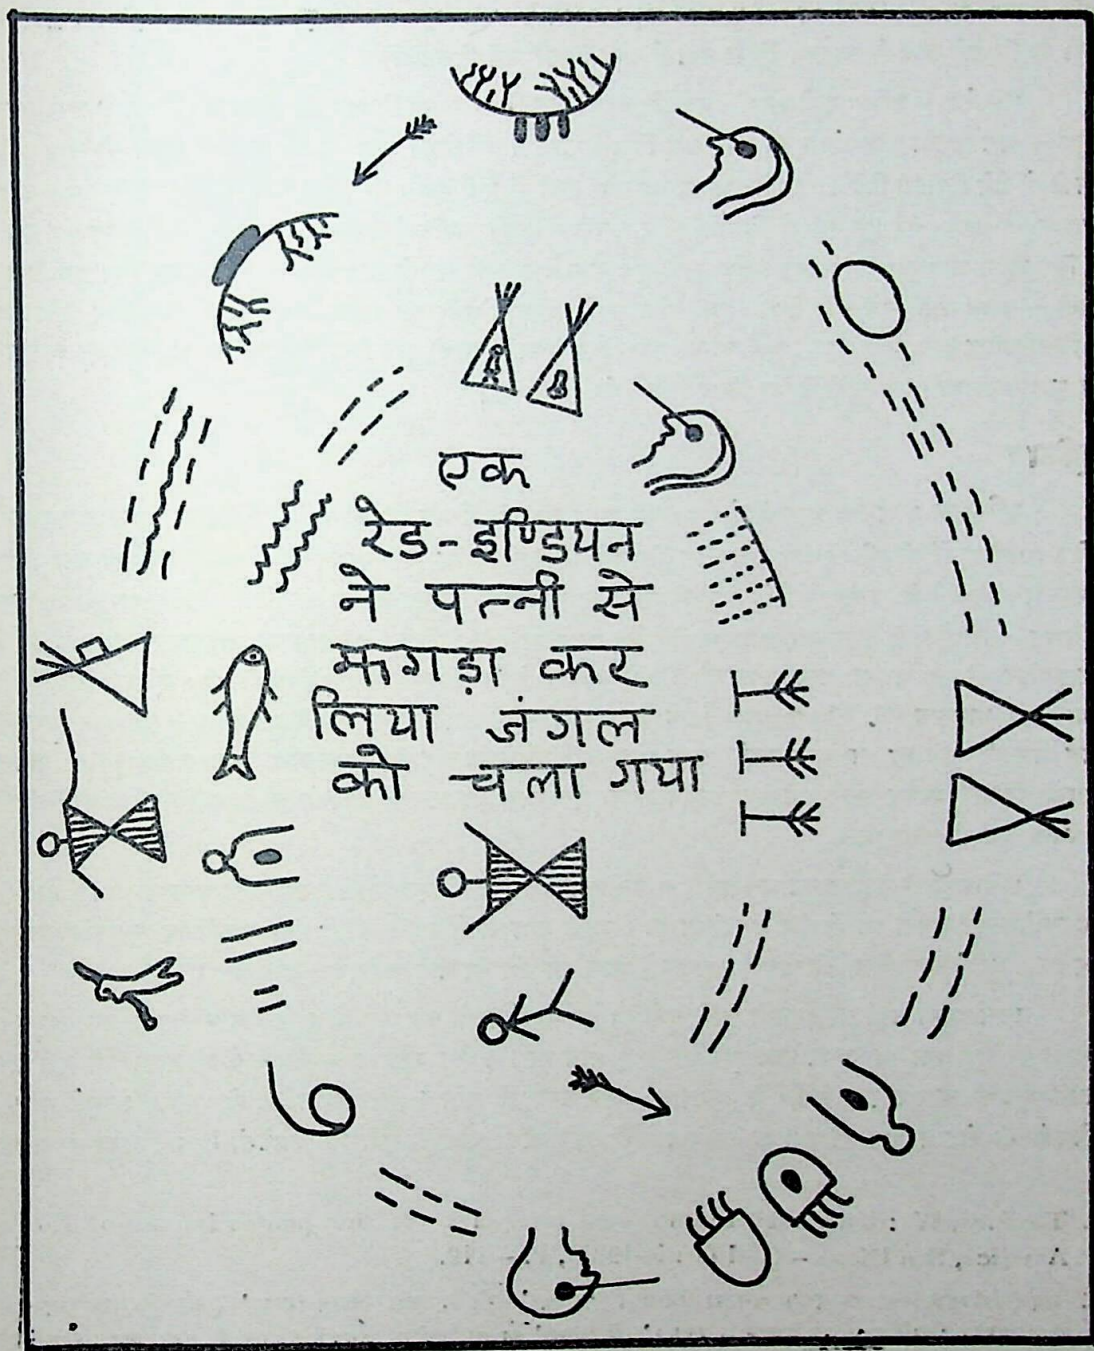 एक
रेड-इण्डियन
ने पत्नी से
झगड़ा कर
लिया जंगल
को चला गया